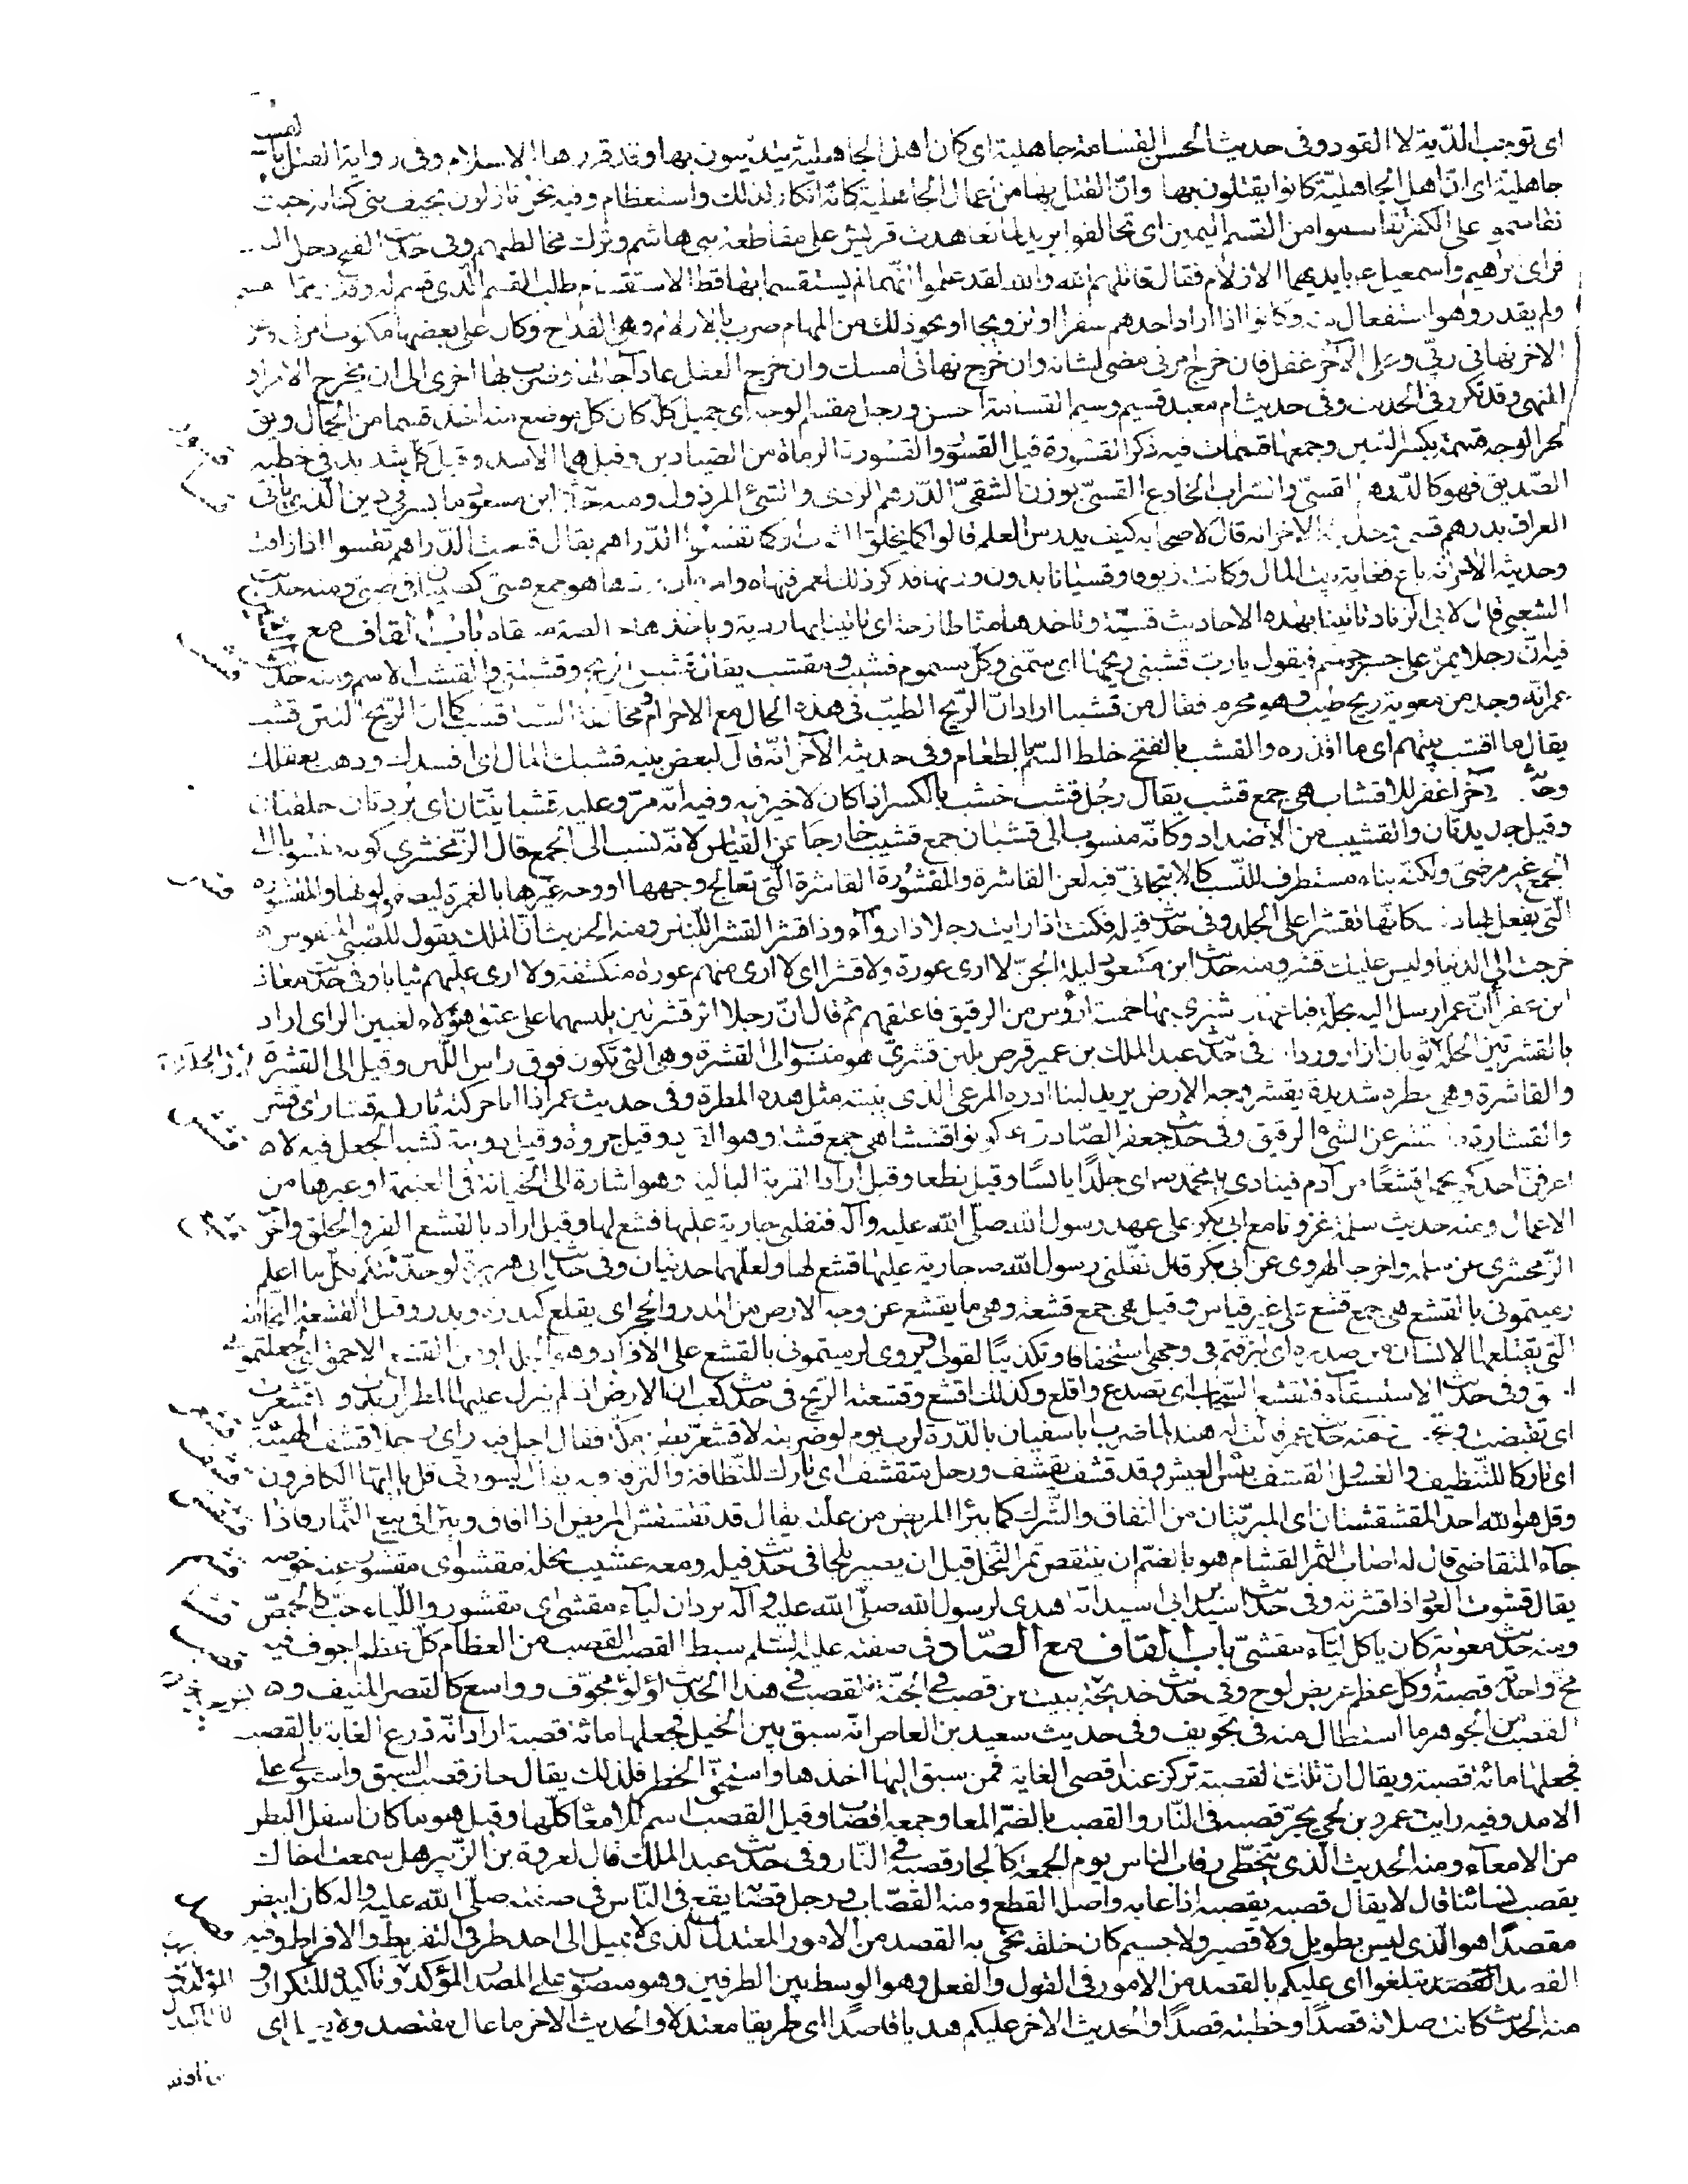 اى توجب الدّية لا القود وفى حديث الحسن القسامة جاهلية اى كان اهل الجاهلية يتدينون بها وقد قررها الاسلام وفى رواية القتل بالقسامة
جاهلية اى انّ اهل الجاهليّة كانوا يقتلون بها وانّ القتل بها من اعمال الجاهلية كانه انكار لذلك واستعظام وفيه نحن نازلون بخيف بنى كنانة حيث
تقاسموا على الكفر تقاسموا من القسم اليمين اى تحالفوا يريد لما تعاهدت قريش على مقاطعة بنى هاشم وترك مخالطتهم وفى حديث الفتح دخل البيت
فراى ابراهيم واسمعيل بايديهما الازلام فقال قاتلهم الله والله لقد علموا انّهما لم يستقسما بها قط الاستقسام طلب القسم الّذى قسم له وقدر ممّا
ولم يقدر وهو استفعال منه وكانوا اذا اراد احدهم سفرا او تزويجا او نحو ذلك من المهام ضرب بالازلام وهى القداح وكان على بعضها مكتوب امرنى ربى
الاخر نهانى ربّى وعلى الآخر غفل فان خرج امرنى مضى لشانه وان خرج نهانى امسك وان خرج الغفل عاد اجالها وضرب بها اخرى الى ان يخرج الامر او
النهى وقد تكرر فى الحديث وفى حديث ام معبد قسيم وسيم القسامة الحسن ورجل مقسم الوجه اى جميل كله كان كل موضع منه اخذ قسما من الجمال ويق
لحر الوجه قسمة بكسر السين وجمعها قسمات فيه ذكر القسورة قيل القسور والقسورة الرماة من الصيادين وقيل هما الاسد وقيل كل شديد فى خطبة
الصّديق فهو كالدرهم القسىّ والسراب الخادع القسىّ بوزن الشقىّ الدّرهم الردى والشىء المرذول ومنه حديث ابن مسعود ما يسرنى دين الّذى ياتى
العراف بدرهم قسى وحديثه الاخر انه قال لاصحابه كيف يدرس العلم قالوا كما يخلق الثوب او كما تقسو الدّراهم يقال قست الدّراهم تقسوا اذا زافت
وحديثه الاخر انه باع نفاية بيت المال وكانت زيوفا وقسيانا بدون وزنها فذكر ذلك لعمر فنهاه وامره ان يردها هو جمع قسى كصبيان فى صبى ومنه حديث
الشعبى قال لابى الزناد تاتينا بهذه الاحاديث قسيّة وتاخذها منا طازجة اى تاتينا بها ردية وتاخذها خالصة منقاة باب القاف مع الشين
فيه انّ رجلا يمرّ على جسر جهنم فيقول يارب قشبنى ريحها اى سمّنى وكلّ مسموم قشيب ومقشب يقال قشبنى الريح وقشبتنى والقشب الاسم ومنه حديث
عمر انّه وجد من معوية ريح طيب وهو محرم فقال من قشبنا اراد انّ الرّيح الطيّب فى هذه الحال مع الاحرام ومخالفة السنة قشب كما انّ الرّيح النتن قشب
يقال ما اقشب بيتهم اى ما اقذره والقشب بالفتح خلط السّم بالطعام وفى حديثه الآخر انّه قال لبعض بنيه قشبك المال اى افسدك وذهب بعقلك
وحديث الآخر اغفر للاقشاب هى جمع قشب يقال رجل قشب خشب بالكسر اذا كان لا خير فيه وفيه انّه مرّ وعليه قشبانيّتان اى بردتان خلقتان
وقيل جديدتان والقشيب من الاضداد وكانّه منسوب الى قشبان جمع قشيب خارجا عن القياس لانّه نسب الى الجمع قال الزّمخشرى كونه منسوبا الى
الجمع غير مرضى ولكنّه بناء مستطرف للنّسب كالانبجانىّ فيه لعن القاشرة والمقشورة القاشرة الّتى تعالج وجهها او وجه غيرها بالغمرة ليصفو لونها والمقشورة
الّتى يفعل بها ذلك كانّها تقشر اعلى الجلد وفى حديث قيلة فكنت اذا رايت رجلا ذا رواء وذا قشر القشر اللّباس ومنه الحديث انّ الملك يقول للصّبىّ المنفوس
خرجت الى الدنيا وليس عليك قشر ومنه حديث ابن مسعود ليلة الجنّ لا ارى عورة ولا قشرا اى لا ارى منهم عورة منكشفة ولا ارى عليهم ثيابا وفى حديث معاذ
ابن عفراء انّ عمر ارسل اليه بحلة فباعها فاشترى بها خمسة ارؤس من الرقيق فاعتقهم ثم قال انّ رجلا اثر قشرتين يلبسهما على عتق هؤلاء لغبين الراى اراد
بالقشرتين الحلة لان الحلة ثوبان ازار ورداء وفى حديث عبد الملك بن عمير قرص بلبن قشرىّ هو منسوب الى القشرة وهى التى تكون فوق راس اللّبن وقيل الى القشرة
والقاشرة وهى مطرة شديدة يقشر وجه الارض يريد لبنا ادره المرعى الذى ينبته مثل هذه المطرة وفى حديث عمر اذا انا حركته ثار له قشار اى قشر
والقشارة ما ينقشر عن الشىء الرقيق وفى حديث جعفر الصّادق كونوا قششا هى جمع قشة وهو القرد وقيل جروه وقيل دويبة تشبه الجعل فيه لا
اعرفن احدكم يحمل قشعا من ادم فينادى يا محمد اى جلدا يابسا وقيل نطعا وقيل اراد القربة البالية وهو اشارة الى الخيانة فى الغنيمة او غيرها من
الاعمال ومنه حديث سلمة غزونا مع ابى بكر على عهد رسول الله صلّى الله عليه وآله فنفلنى جارية عليها قشع لها وقيل اراد بالقشع الفرو الخلق واخرجه
الزّمخشرى عن سلمة واخرجه الهروى عن ابى بكر قال نفّلنى رسول الله ص جارية عليها قشع لها ولعلّهما حديثان وفى حديث ابى هريرة لو حدّثتكم بكل ما اعلم
رميتمونى بالقشع هى جمع قشع على غير قياس وقيل هى جمع قشعة وهى ما يقشع عن وجه الارض من المدر والحجر اى يقلع كبدرة وبدر وقيل القشعة النّخامة
التى يقتلعها الانسان من صدره اى لبزقتم فى وجهى استخفافا وتكذيبا لقولى ويروى لرميتمونى بالقشع على الافراد وهو الجلد او من القشع الاحمق اى لجعلتمونى
وفى حديث الاستسقاء فتقشع السّحاب اى تصدع واقلع وكذلك اقشع وقشعته الرّيح فى حديث كعب ان الارض اذا لم ينزل عليها المطر اربدّت واقشعرت
اى تقبضت وتجمعت ومنه حديث عمر قالت له هند لما ضرب ابا سفيان بالدّرة لربّ يوم لو ضربته لاقشعرّ بطن مكّة فقال اجل فيه راى رجلا قشف الهيئة
اى تاركا للتّنظيف والغسل القشف يبس العيش وقد قشف يقشف ورجل متقشف اى تارك للنّظافة والترفه فيه يقال لسورتى قل يا ايّها الكافرون
وقل هو الله احد المقشقشتان اى المبرّئتان من النفاق والشّرك كما يبرا المريض من علته يقال قد تقشقش المريض اذا افاق وبرا فى بيع الثّمار فاذا
جاء المتقاضى قال له اصاب الثمر القشام هو بالضّم ان ينتقض ثمر النّخل قبل ان يصير بلحا فى حديث قيلة ومعه عسيّب نخلة مقشو اى مقشور عنه خوصه
يقال قشوت العود اذا قشرته وفى حديث اسيد بن ابى اسيد انه اهدى لرسول الله صلّى الله عليه وآله بودّان لياء مقشى اى مقشور واللّياء حبّ كالحمّص
ومنه حديث معوية كان ياكل لياء مقشىّ باب القاف مع الصّاد فى صفته عليه السّلم سبط القصب القصب من العظام كلّ عظم اجوف فيه
مخّ واحدته قصبة وكل عظم عريض لوح وفى حديث خديجة ببيت من قصب فى الجنّة القصب فى هذا الحديث لؤلؤ مجوّف واسع كالقصر المنيف و
القصب من الجوهر ما استطال منه فى تجويف وفى حديث سعيد بن العاص انّه سبق بين الخيل فجعلها مائة قصبة اراد انّه ذرع الغاية بالقصب
فجعلها مائة قصبة ويقال انّ تلك القصبة تركز عند اقصى الغاية فمن سبق اليها اخذها واستحقّ الخطر فلذلك يقال حاز قصب السبق واستولى على
الامد وفيه رايت عمرو بن لحى يجرّ قصبه فى النّار والقصب بالضّم المعا وجمعه اقصاب وقيل القصب اسم للامعاء كلّها وقيل هو ما كان اسفل البطن
من الامعاء ومنه الحديث الّذى يتخطّى رقاب الناس يوم الجمعة كالجار قصبه فى النّار وفى حديث عبد الملك قال لعروة بن الزّبير هل سمعت اخاك
يقصب نسائنا قال لا يقال قصبه يقصبه اذا عابه واصل القطع ومنه القصّاب ورجل قصّابة يقع فى النّاس فى صفته صلّى الله عليه وآله كان ابيض
مقصدًا هو الّذى ليس بطويل ولا قصير ولا جسيم كان خلقه نحى به القصد من الامور المعتدل الّذى لا يميل الى احد طرفى التفريط والافراط وفيه
القصد القصد تبلغوا اى عليكم بالقصد من الامور فى القول والفعل وهو الوسط بين الطرفين وهو منصوب على المصدر المؤكد وتاكيده للتكرار و
منه الحديث كانت صلاته قصدًا وخطبته قصدًا والحديث الاخر عليكم هديا قاصدًا اى طريقا معتدلا والحديث الاخر ما عال مقتصد ولا يعيل اى